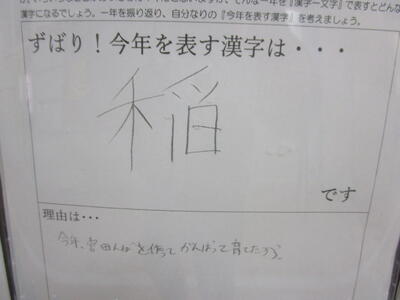 漢字になるでしょう。一年を振り返り、自分なりの『今年を表す漢字』を考えましょう。
ずばり！今年を表す漢字は・・・
稲
です
理由は・・・
今年、宮田んぼを作ってがんばって育てたから。